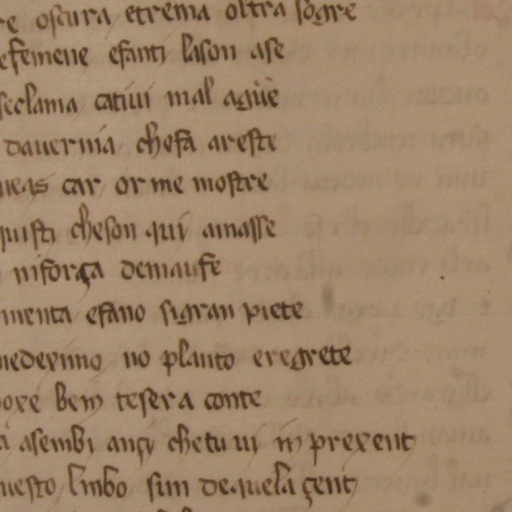 re oscura etrema oltra sogre
efemene efanti lason ase
seclama cativi mal ague
dauernia chesa areste
ueis car orme mostre
quisti cheson qui amasse
nisforça demaufe
menta efano sigran piete
medeximo no planto eregrete
poxe bem tesera conte
a asembi ançi chetu vi in prexent
uesto limbo sun dequela çent